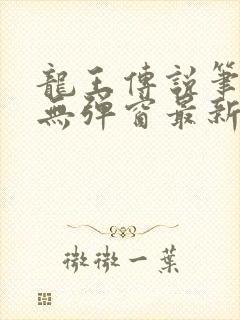 龍王傳說筆
無彈窗最新
微微一葉